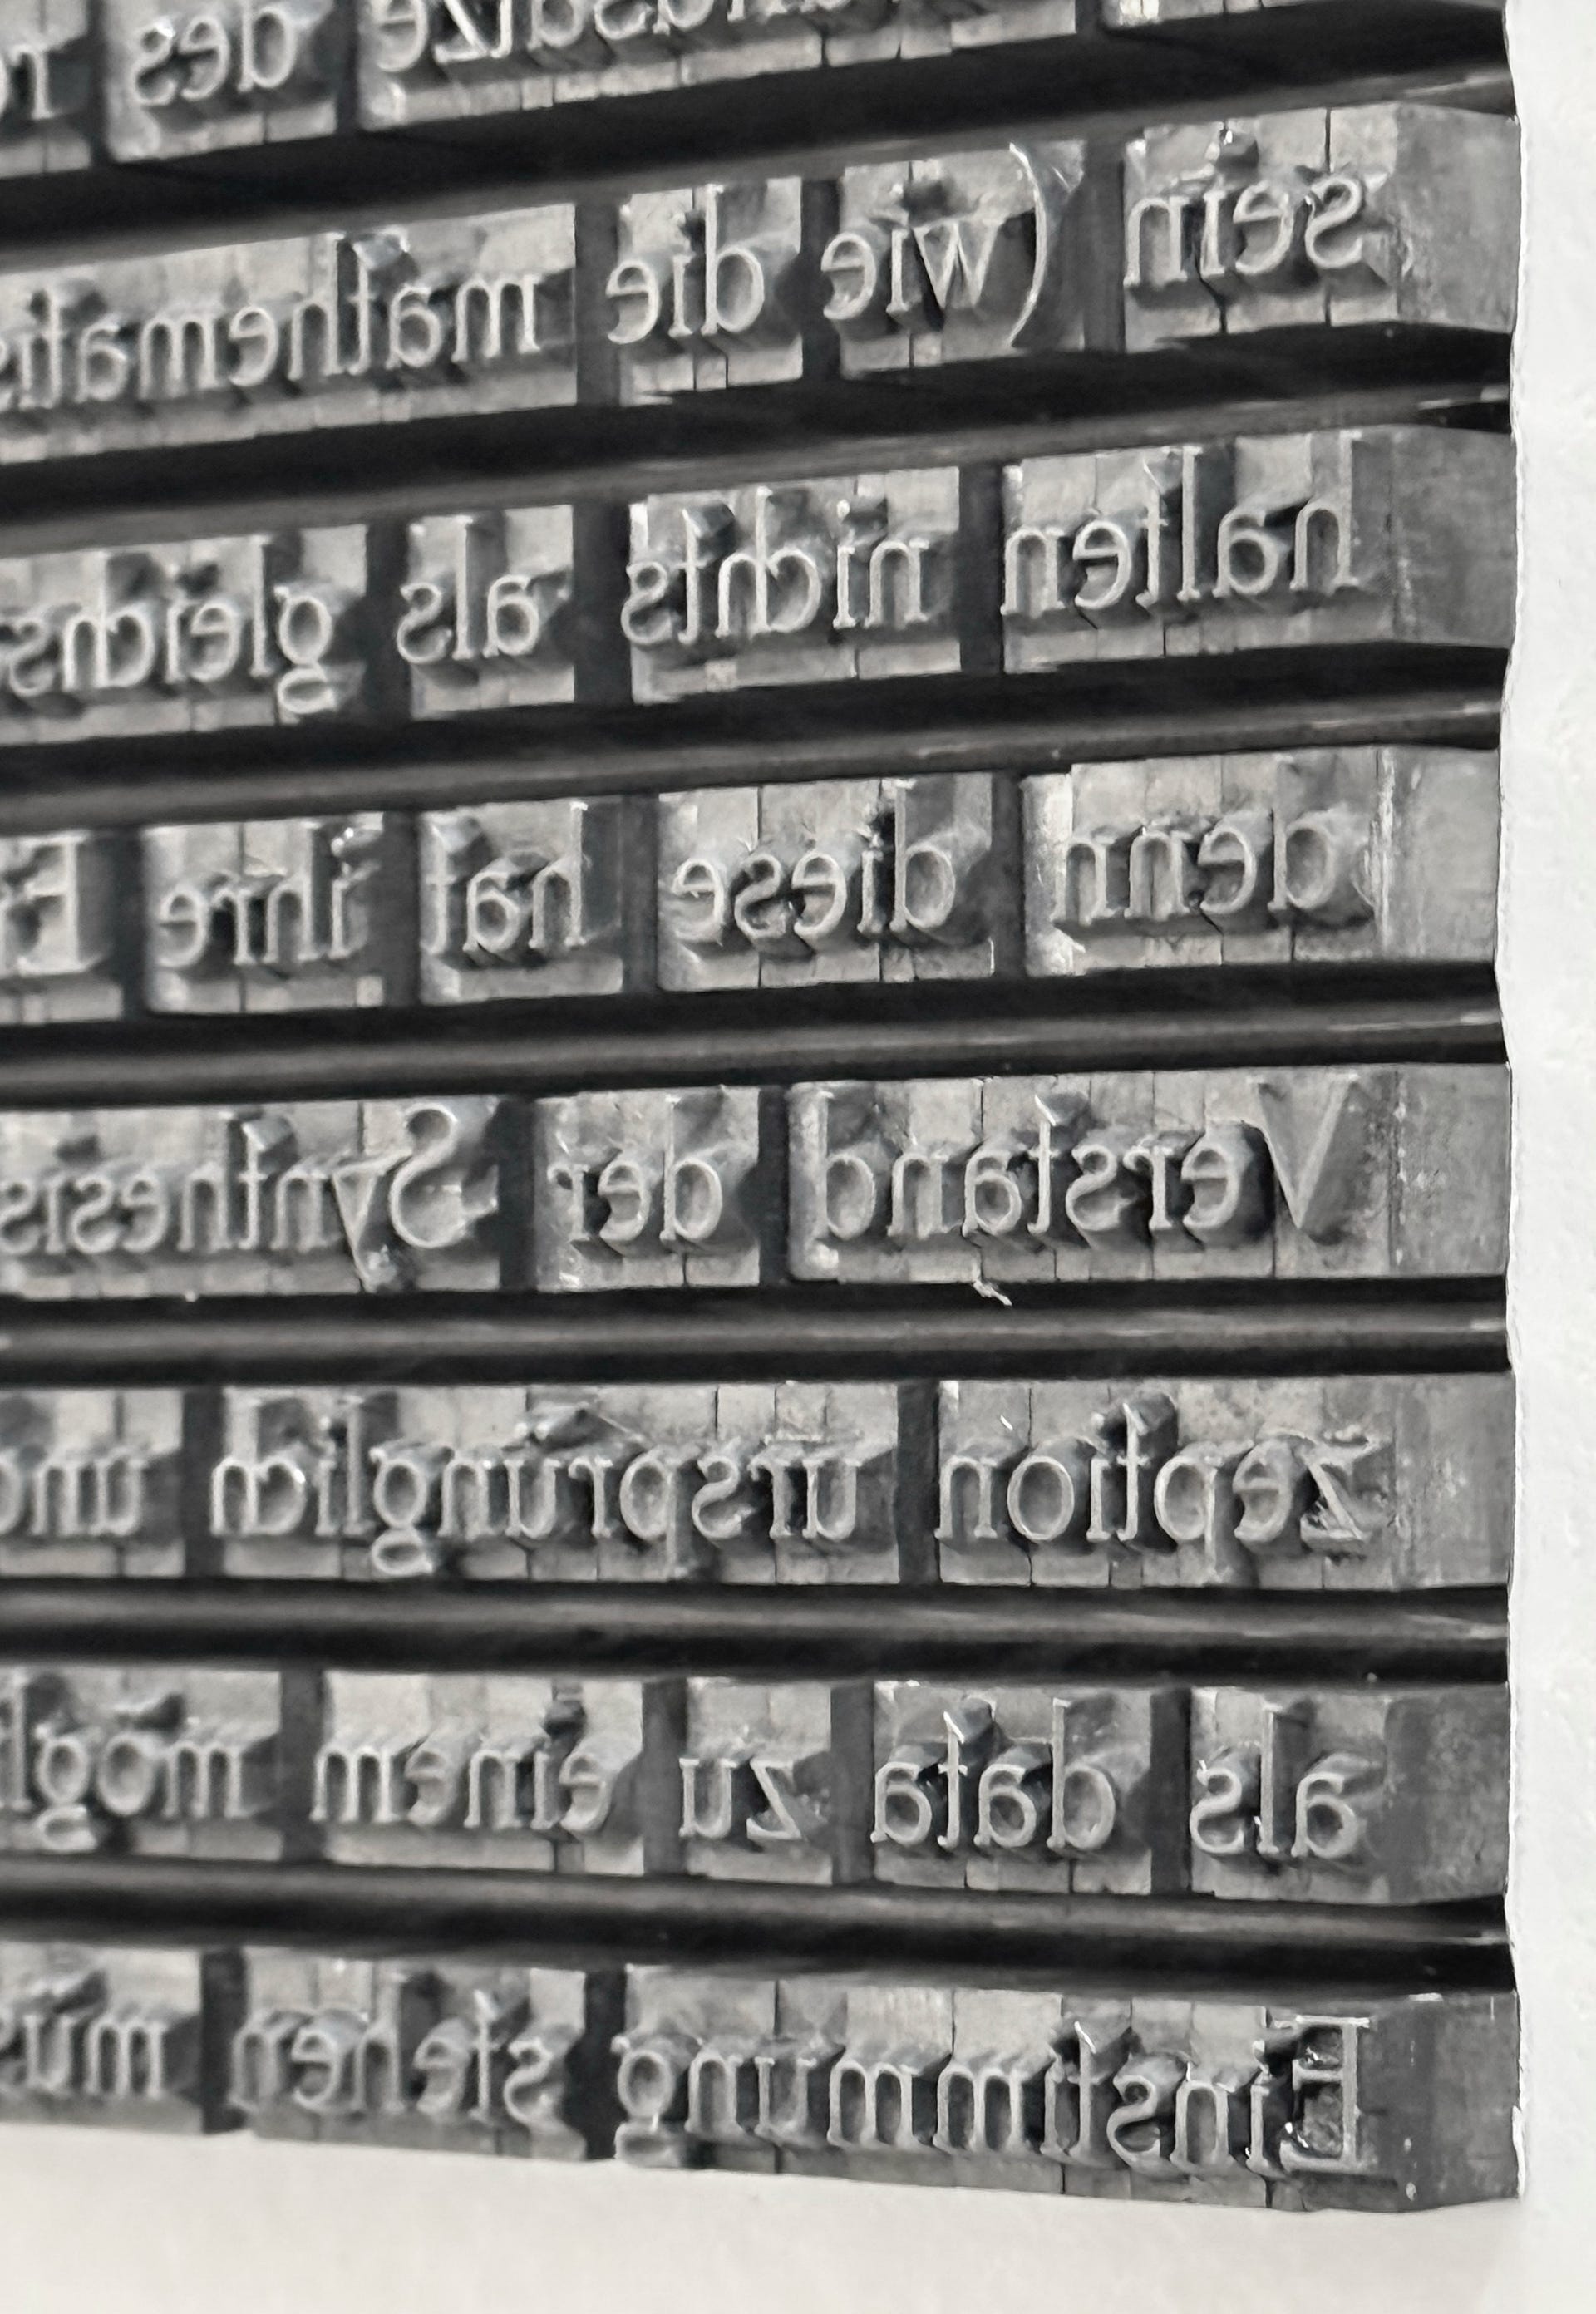 des
sein (wie die mathematis
halten nichts als gleichs
denn diese hat ihre
Verstand der Synthesis
zeption ursprünglich und
als data zu einem mögl
Einstimmung stehen mus